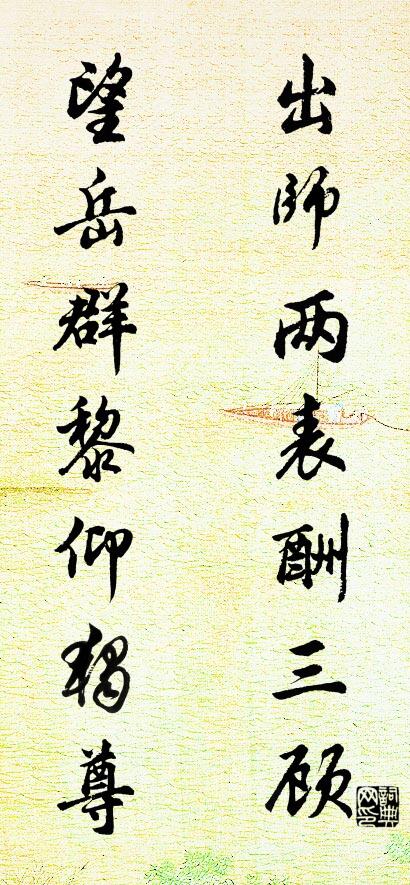 出師两表酬三顾
望岳群黎仰独尊
詞典网印